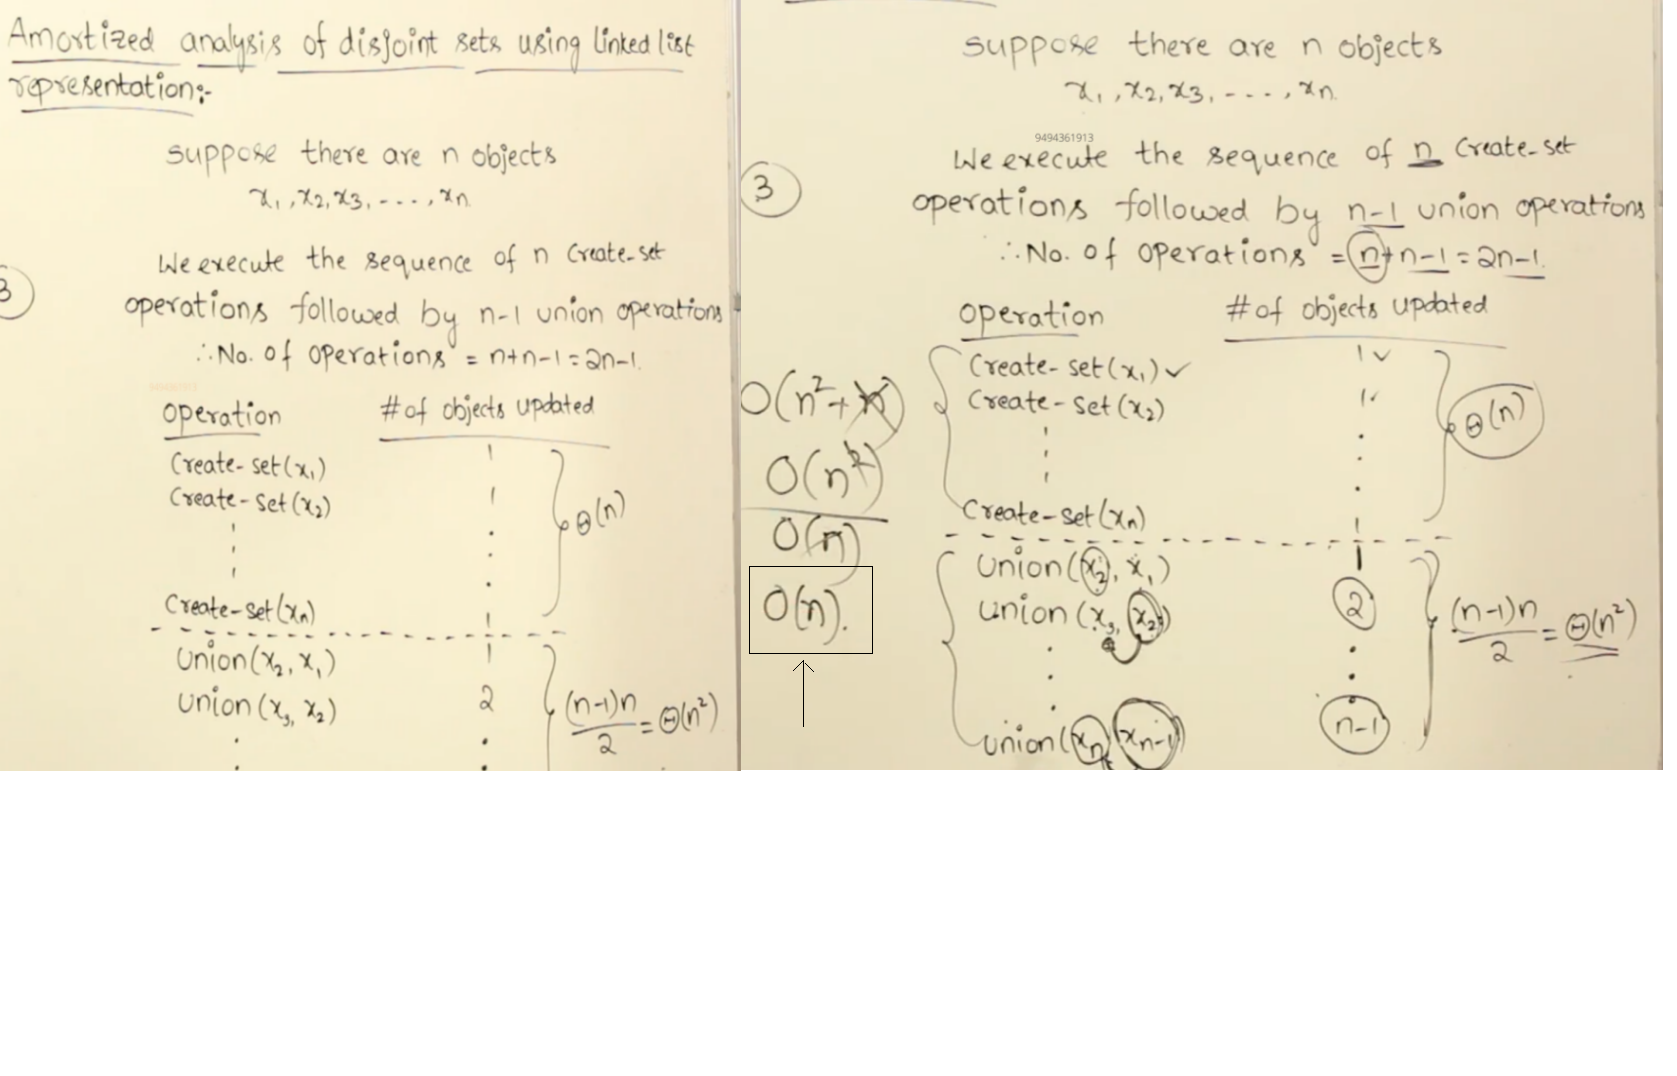 Amortized analysis of disjoint sets using linked list
representation:-
suppose there are n objects
x₁, x₂, x₃, - - - -, xn.
We execute the sequence of n Create-set
operations followed by n-1 union operations
∴ No. of operations = n+n-1 = 2n-1.
operation # of objects updated
Create-set(x₁) 1
Create-set(x₂) 1
Θ(n)
Create-set(xn) 1
union(x₂, x₁) 1
union(x₃, x₂) 2
(n-1)n/2 = Θ(n²)
suppose there are n objects
x₁, x₂, x₃, - - - -, xn.
9494361913
We execute the sequence of n Create-set
3
operations followed by n-1 union operations
∴ No. of operations = n+n-1 = 2n-1.
operation # of objects updated
Create-set(x₁) ✓ 1 ✓
Create-set(x₂) 1 ✓
Θ(n)
Create-set(xn) 1
union(x₂, x₁) 1
union(x₃, x₂) 2
(n-1)n/2 = Θ(n²)
union(xn, xn-1) n-1
O(n²+n)
O(n²)
O(n)
O(n).